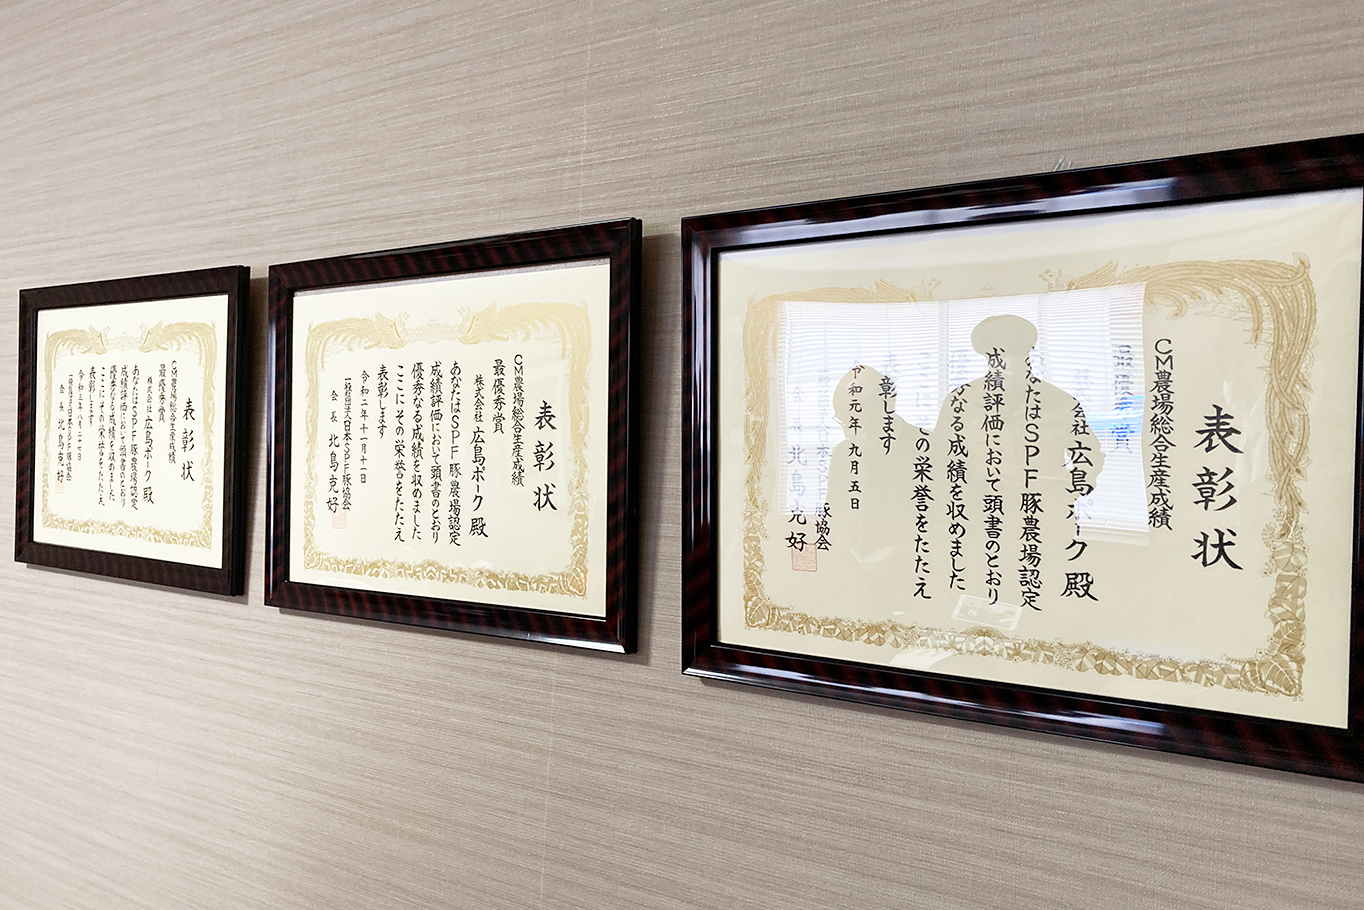 表彰状
CM農場総合生産成績
最優秀賞
会社 広島ポーク 殿
あなたはSPF豚農場認定
成績評価において頭書のとおり
優秀なる成績を収めました
ここにその栄誉をたたえ
表彰します
令和元年九月五日
日本SPF豚協会
北島克好
表彰状
CM農場総合生産成績
最優秀賞
株式会社 広島ポーク 殿
あなたはSPF豚農場認定
成績評価において頭書のとおり
優秀なる成績を収めました
ここにその栄誉をたたえ
表彰します
令和二年十一月十一日
一般社団法人日本SPF豚協会
会長 北島克好
表彰状
CM農場総合生産成績
最優秀賞
株式会社 広島ポーク 殿
あなたはSPF豚農場認定
成績評価において頭書のとおり
優秀なる成績を収めました
ここにその栄誉をたたえ
表彰します
令和三年八月二十七日
一般社団法人日本SPF豚協会
会長 北島克好